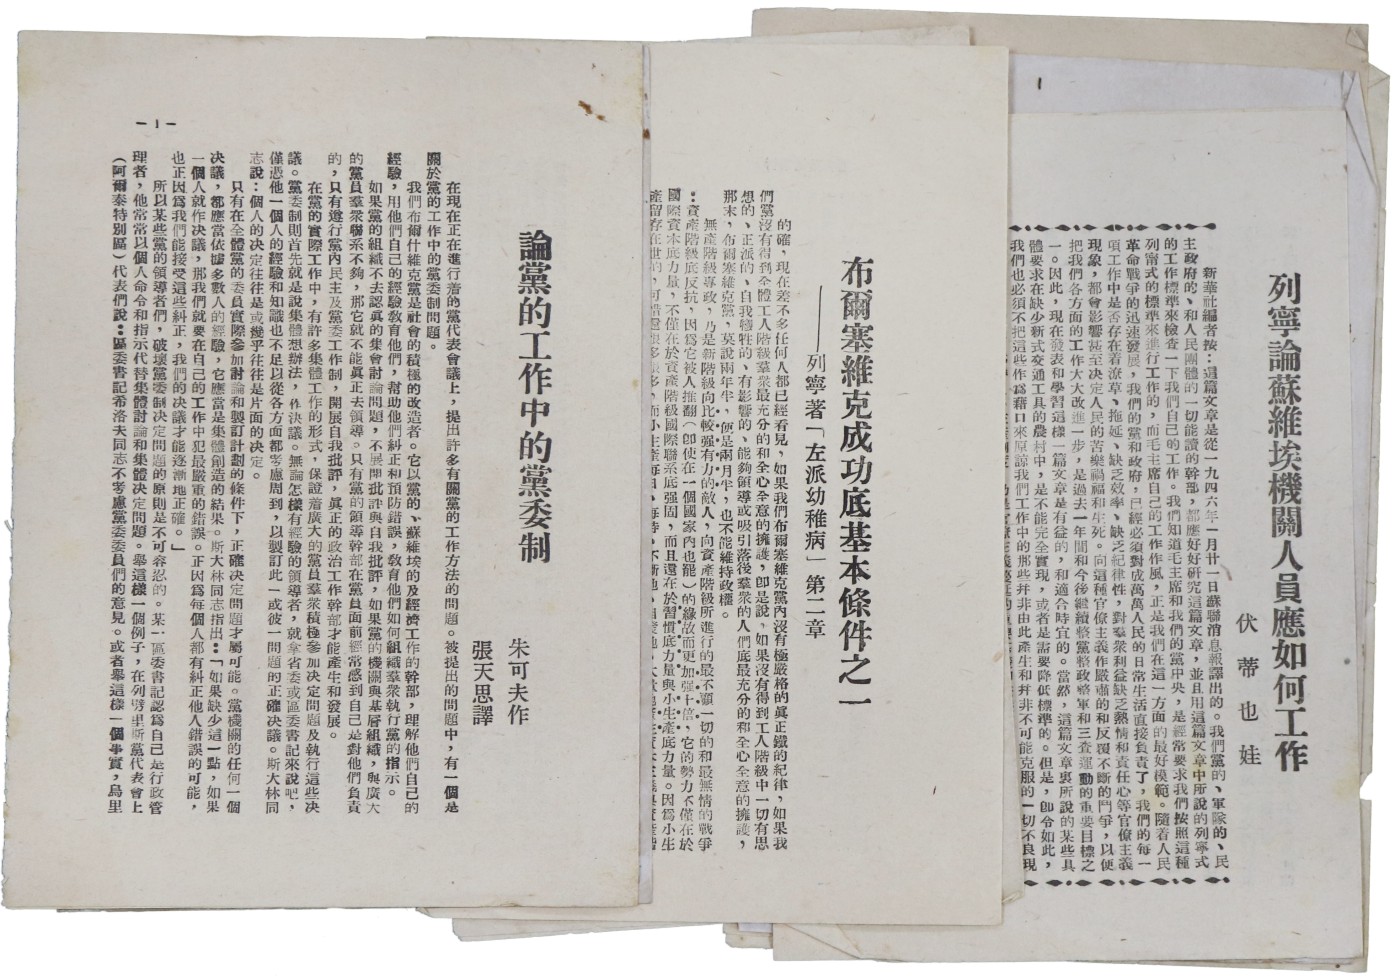 列寧論蘇維埃機關人員應如何工作
伏蒂也娃
新華社編者按：這篇文章是從一九四六年一月廿一日蘇聯消息報譯出的。我們黨的、軍隊的、民
主政府的、和人民團體的一切能讀的幹部，都應好好研究這篇文章，並且用這篇文章中所說的列寧式
的工作標準來檢查一下我們自己的工作。我們知道毛主席和我們的黨中央，是經常要求我們按照這種
列甯式的標準來進行工作的，而毛主席自己的工作作風，正是我們在這一方面的最好模範。隨着人民
革命戰爭的迅速發展，我們的黨和政府，已經必須對成萬萬人民的日常生活直接負責了，我們的每一
項工作中是否存在着潦草、拖延、缺乏效率、缺乏紀律性，對羣衆利益缺乏熱情和責任心等官僚主義
現象，都會影響甚至決定人民的苦樂禍福和生死。向這種官僚主義作嚴肅的和反覆不斷的鬥爭，以便
把我們各方面的工作大大改進一步，是過去一年間和今後繼續整黨整政整軍和三查運動的重要目標之
一。因此，現在發表和學習這樣一篇文章是有益的，和適合時宜的。當然，這篇文章裏所說的某些具
體要求在缺少新式交通工具的農村中，是不能完全實現，或者是需要降低標準的。但是，卽令如此，
我們也必須不把這些作爲藉口來原諒我們工作中的那些幷非由此產生和幷非不可能克服的一切不良現
布爾塞維克成功底基本條件之一
——列寧著「左派幼稚病」第二章
的確，現在差不多任何人都已經看見，如果我們布爾塞維克黨內沒有極嚴格的眞正鐵的紀律，如果我
們黨沒有得到全體工人階級羣衆最充分的和全心全意的擁護，卽是說，如果沒有得到工人階級中一切有思
想的、正派的、自我犧牲的、有影響的、能夠領導或吸引落後羣衆的人們底最充分的和全心全意的擁護，
那末，布爾塞維克黨，莫說兩年半，便是兩月半，也不能維持政權。
無產階級專政，乃是新階級向比較强有力的敵人，向資產階級所進行的最不顧一切的和最無情的戰爭
：資產階級底反抗，因爲它被人推翻（卽使在一個國家內也罷）的緣故而更加强十倍，它的勢力不僅在於
國際資本底力量，不僅在於資產階級國際聯系底强固，而且還在於習慣底力量與小生產底力量。因爲小生
論黨的工作中的黨委制
朱可夫作
張天思譯
在現在正在進行着的黨代表會議上，提出許多有關黨的工作方法的問題。被提出的問題中，有一個是
關於黨的工作中的黨委制問題。
我們布爾什維克黨是社會的積極的改造者。它以黨的、蘇維埃的及經濟工作的幹部，理解他們自己的
經驗，用他們自己的經驗敎育他們，幇助他們糾正和預防錯誤，敎育他們如何組織羣衆執行黨的指示。
如果黨的組織不去認眞的集會討論問題，不展開批評與自我批評，如果黨的機關與基層組織，與廣大
的黨員羣衆聯系不夠，那它就不能眞正去領導。只有黨的領導幹部在黨員面前經常感到自己是對他們負責
的，只有遂行黨內民主及黨委工作制，開展自我批評，眞正的政治工作幹部才能產生和發展。
在黨的實際工作中，有許多集體工作的形式，保證着廣大的黨員羣衆積極參加决定問題及執行這些决
議。黨委制則首先就是說集體想辦法，作决議。無論怎樣有經驗的領導者，就拿省委或區委書記來說吧，
僅憑他一個人的經驗和知識也不足以從各方面都考慮周到，以製訂此一或彼一問題的正確决議。斯大林同
志說：個人的决定往往是或幾乎往往是片面的决定。
只有在全體黨的委員實際參加討論和製訂計劃的條件下，正確决定問題才屬可能。黨機關的任何一個
决議，都應當依據多數人的經驗，它應當是集體創造的結果。斯大林同志指出：「如果缺少這一點，如果
一個人就作决議，那我們就要在自己的工作中犯最嚴重的錯誤。正因爲每個人都有糾正他人錯誤的可能，
也正因爲我們能接受這些糾正，我們的决議才能逐漸地正確。」
所以某些黨的領導者們，破壞黨委制决定問題的原則是不可容忍的。某一區委書記認爲自己是行政管
理者，他常常以個人命令和指示代替集體討論和集體决定問題。舉這樣一個例子，在列甯里斯黨代表會上
（阿爾泰特別區）代表們說：區委書記希洛夫同志不考慮黨委委員們的意見。或者舉這樣一個事實，烏里
—1—